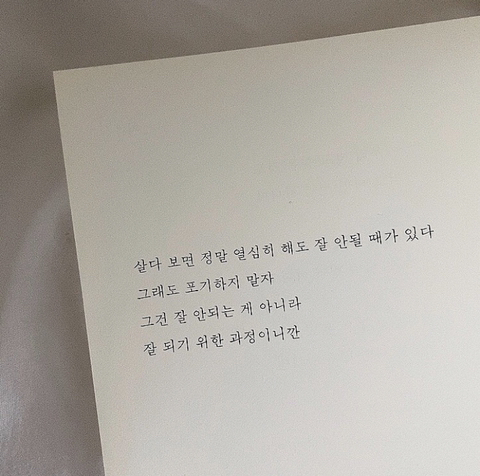 살다 보면 정말 열심히 해도 잘 안될 때가 있다
그래도 포기하지 말자
그건 잘 안되는 게 아니라
잘 되기 위한 과정이니깐